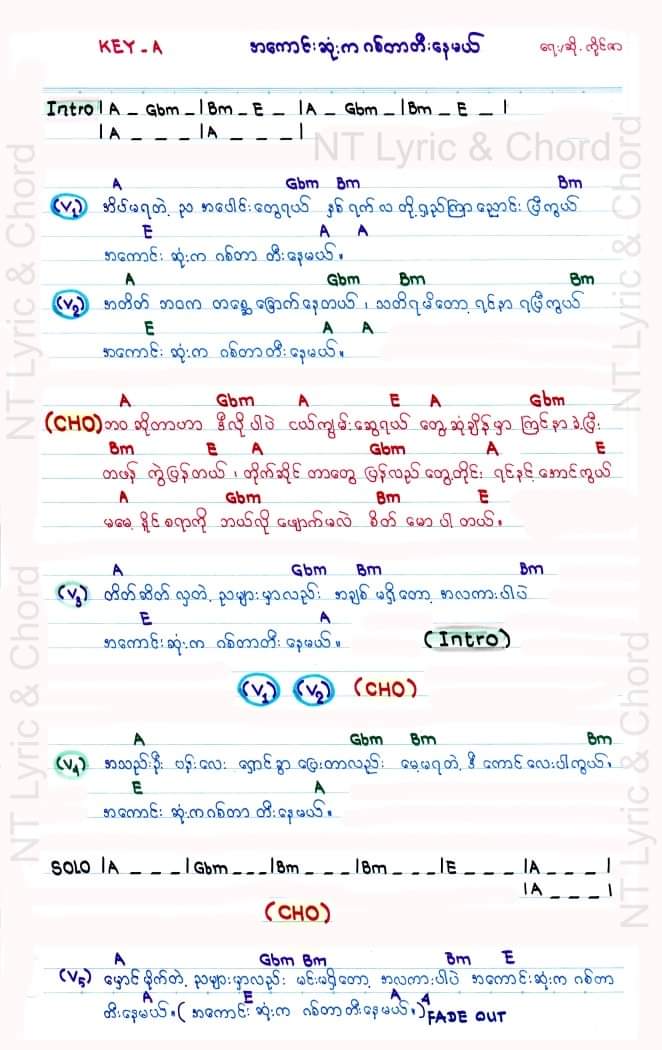 KEY - A အကောင်းဆုံးက ဂစ်တာတီးနေမယ် ရေး/ဆို - ကိုင်ဇာ
Intro | A _ Gbm _ | Bm _ E _ | A _ Gbm _ | Bm _ E _ |
| A _ _ _ | A _ _ _ |
NT Lyric & Chord
A Gbm Bm Bm
(V1) အိပ်မရတဲ့ ည အပေါင်းတွေရယ် နှစ် ရက် လ တို့ ရှည်ကြာ ညောင်း ပြီကွယ်
E A A
အကောင်း ဆုံးက ဂစ်တာ တီးနေမယ်။
A Gbm Bm Bm
(V2) အတိတ် ဘဝက တစ္ဆေ ခြောက်နေတယ်၊ သတိရမိတော့ ရင်နာ ရပြီကွယ်
E A A
အကောင်း ဆုံးက ဂစ်တာတီးနေမယ်။
A Gbm A E A Gbm
(CHO) ဘဝ ဆိုတာဟာ ဒီလိုပါပဲ ငယ်ကျွမ်းဆွေရယ် တွေ့ဆုံချိန်မှာ ကြင်နာခဲ့ပြီး
Bm E A Gbm A E
တဖန် ကွဲပြန်တယ်၊ တိုက်ဆိုင် တာတွေ ပြန်လည် တွေ့တိုင်း ရင်နင့် အောင်ကွယ်
A Gbm Bm E
မမေ့ နိုင်စရာကို ဘယ်လို ဖျောက်မလဲ စိတ် မောပါတယ်။
A Gbm Bm Bm
(V3) တိတ်ဆိတ် လှတဲ့ ညများမှာလည်း အချစ် မရှိတော့ အလကားပါပဲ
E A
အကောင်း ဆုံးက ဂစ်တာတီး နေမယ်။ (Intro)
(V1) (V2) (CHO)
A Gbm Bm Bm
(V4) အသည်းဦး ပန်းလေး ရှောင်ခွာ ပြေးတာလည်း မေ့မရတဲ့ ဒီ ကောင်လေးပါကွယ်။
E A
အကောင်း ဆုံးကဂစ်တာ တီးနေမယ်။
SOLO | A _ _ _ | Gbm _ _ _ | Bm _ _ _ | Bm _ _ _ | E _ _ _ | A _ _ _ |
| A _ _ _ |
(CHO)
A Gbm Bm Bm E
(V5) မှောင်မိုက်တဲ့ ညများမှာလည်း မင်းမရှိတော့ အလကားပါပဲ အကောင်းဆုံးက ဂစ်တာ
A E A
တီးနေမယ်။ (အကောင်း ဆုံးက ဂစ်တာတီးနေမယ်။)4 FADE OUT
NT Lyric & Chord
NT Lyric & Chord
NT Lyric & Chord
NT Lyric & Chord